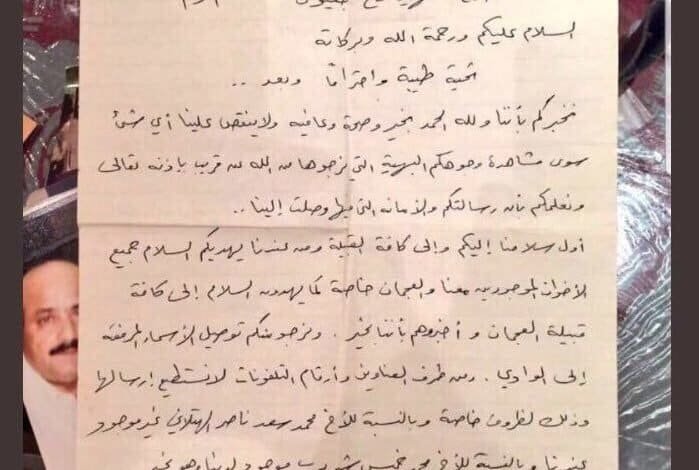 السلام عليكم ورحمة الله وبركاتة
تحية طيبة واحترامًا وبعد ..
نخبركم بأننا ولله الحمد بخير وصحة وعافيه ولاينقص علينا أي شئ
سوى مشاهدة وجوهكم البهية التي نرجوها من الله عن قريب بإذنه تعالى
ونعلمكم بأن رسالتكم والأمانه التي فيها وصلت إلينا ..
أول سلامنا إليكم وإلى كافة القبيلة ومن عندنا يهديكم السلام جميع
الأخوان الموجودين معنا والعجمان خاصة كما يهدون السلام إلى كافة
قبيلة العجمان وأخبروهم بأننا بخير . ونرجو منكم توصيل الأسماء المرفقة
إلى الوادي . ومن طرف العناوين وأرقام التلفونات لانستطيع إرسالها
وذلك لظروف خاصة وبالنسبة للأخ محمد سعد ناصر غير موجود
عندنا وبالنسبة للأخ محمد موجود لدينا وهو بخير